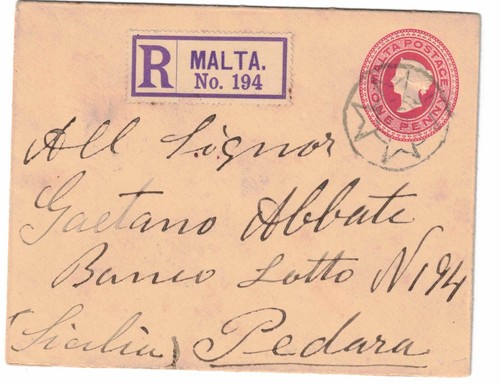 R MALTA.
No. 194
MALTA POSTAGE
ONE PENNY
All Signor
Gaetano Abbate
Banco Lotto N 194
(Sicilia) Pedara